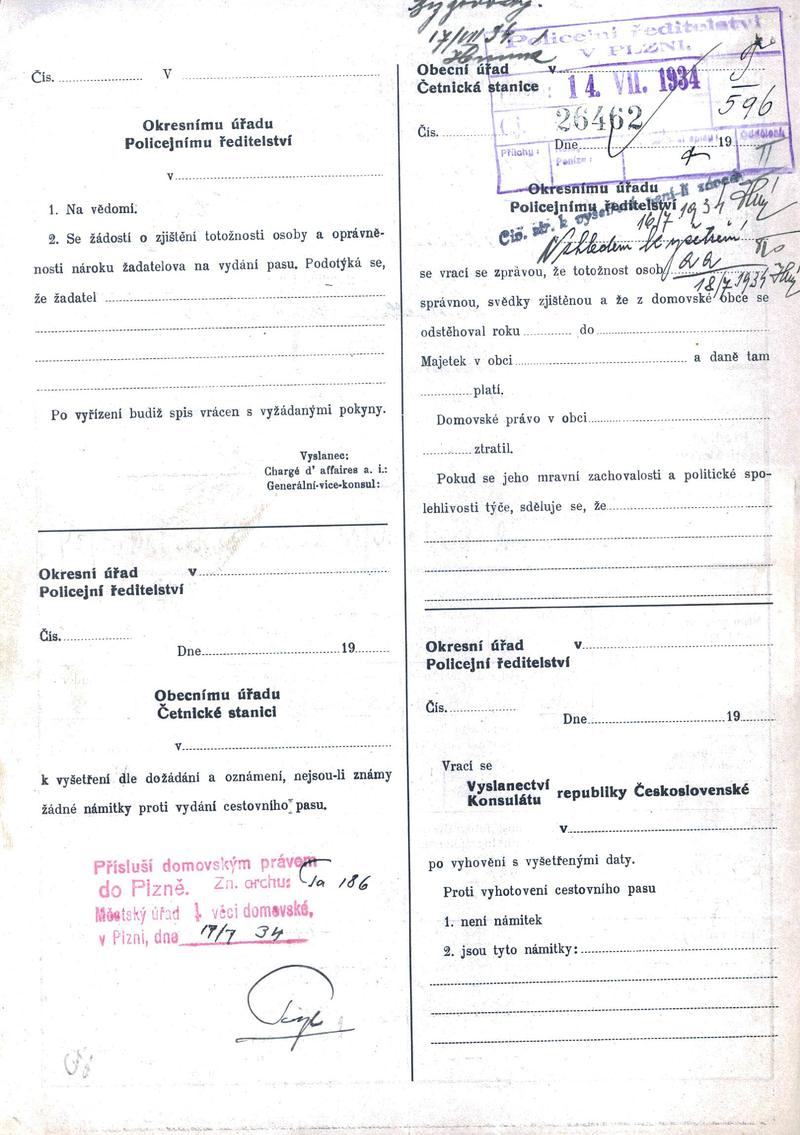 Čís. V
Okresnímu úřadu
Policejnímu ředitelství
v
1. Na vědomí.
2. Se žádostí o zjištění totožnosti osoby a oprávně-
nosti nároku žadatelova na vydání pasu. Podotýká se,
že žadatel
Po vyřízení budiž spis vrácen s vyžádanými pokyny.
Vyslanec:
Chargé d' affaires a. i.:
Generální-vice-konsul:
Okresní úřad v
Policejní ředitelství
Čís.
Dne 19
Obecnímu úřadu
Četnické stanici
v
k vyšetření dle dožádání a oznámení, nejsou-li známy
žádné námitky proti vydání cestovního pasu.
Přísluší domovským právem
do Plzně. Zn. archu: Ia 186
Městský úřad I. věci domovské,
v Plzni, dne 17/7 34
17/VII 34
Policejní ředitelství
V PLZNI.
Obecní úřad v
Četnická stanice
14. VII. 1934
Čj. 26462
596
Čís.
Dne 19
Přílohy: Peníze: Oddělení:
II
Okresnímu úřadu
Policejnímu ředitelství
16/7 1934
Vzhledem k vyšetření
aa
18/7 1934
se vrací se zprávou, že totožnost osob
správnou, svědky zjištěnou a že z domovské obce se
odstěhoval roku do
Majetek v obci a daně tam
platí.
Domovské právo v obci
ztratil.
Pokud se jeho mravní zachovalosti a politické spo-
lehlivosti týče, sděluje se, že
Okresní úřad v
Policejní ředitelství
Čís.
Dne 19
Vrací se
Vyslanectví
Konsulátu republiky Československé
v
po vyhovění s vyšetřenými daty.
Proti vyhotovení cestovního pasu
1. není námitek
2. jsou tyto námitky: